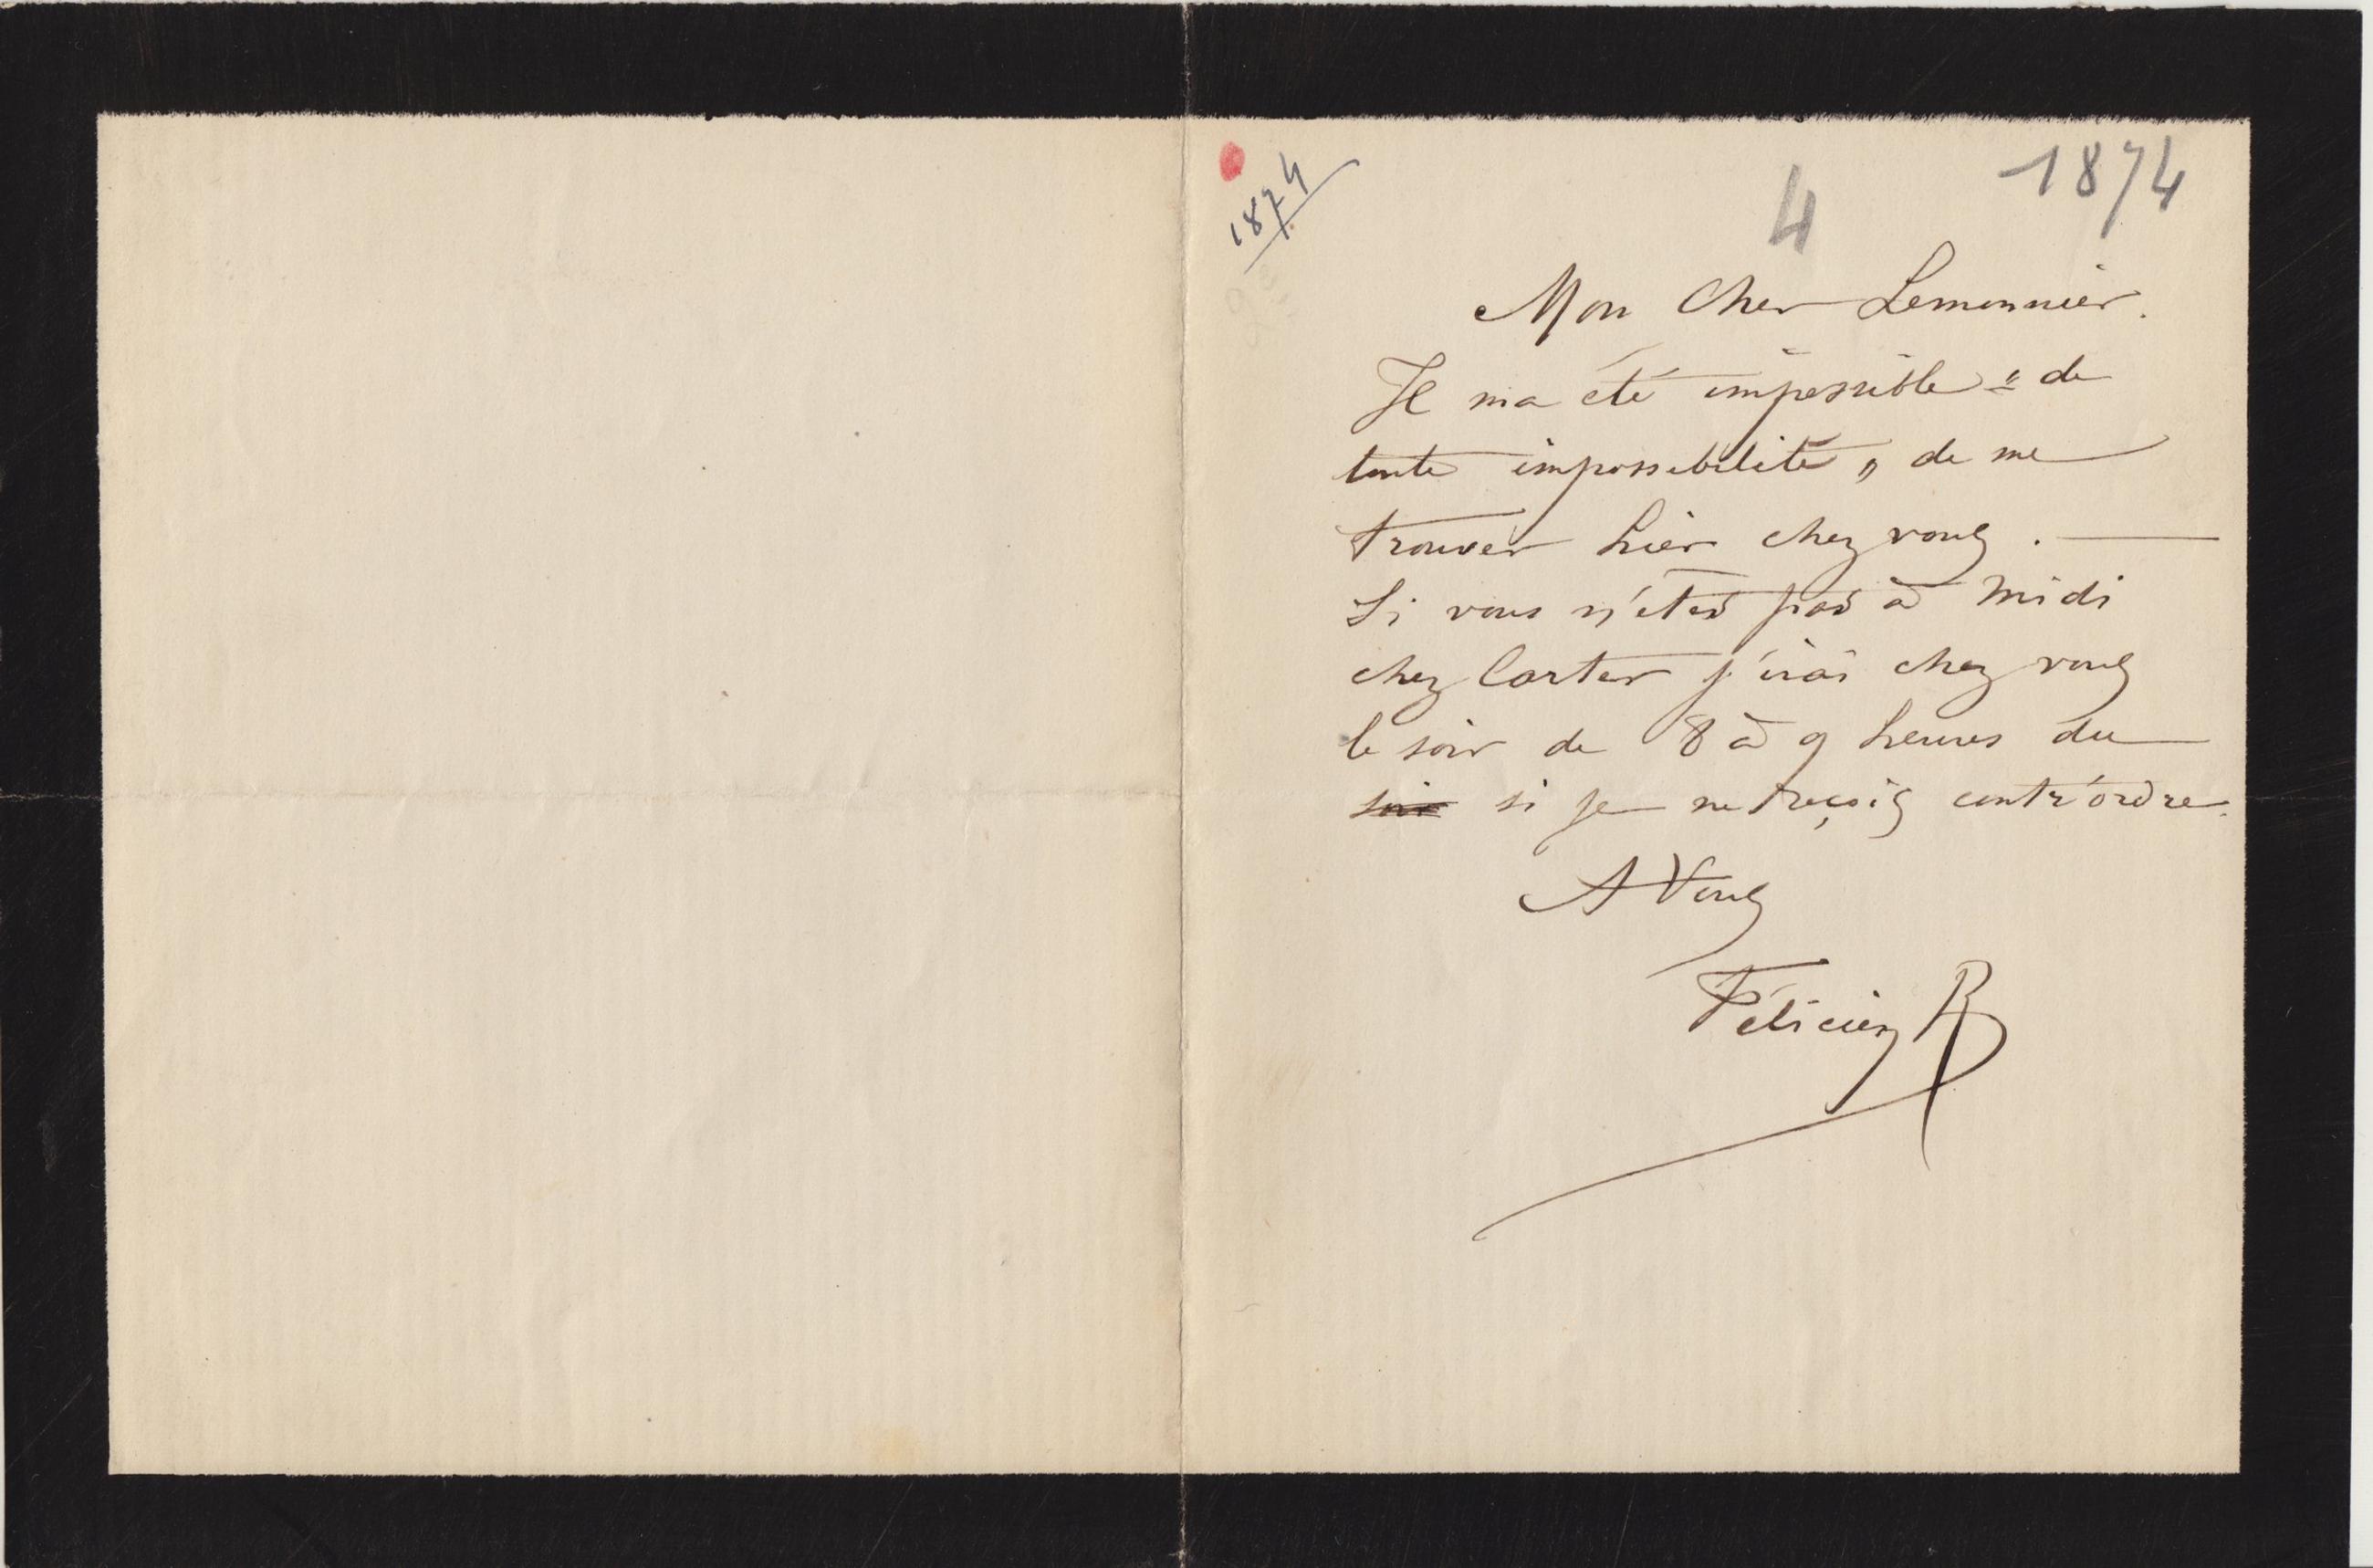 1874
4
1874
Mon Cher Lemonnier.
Il ma été impossible " de
toute impossibilité " de me
trouver hier chez vous. —
Si vous n'étes pas à midi
chez Carter j'irai chez vous
le soir de 8 à 9 heures du
soir si je ne reçois contr'ordre.
A Vous
Félicien R